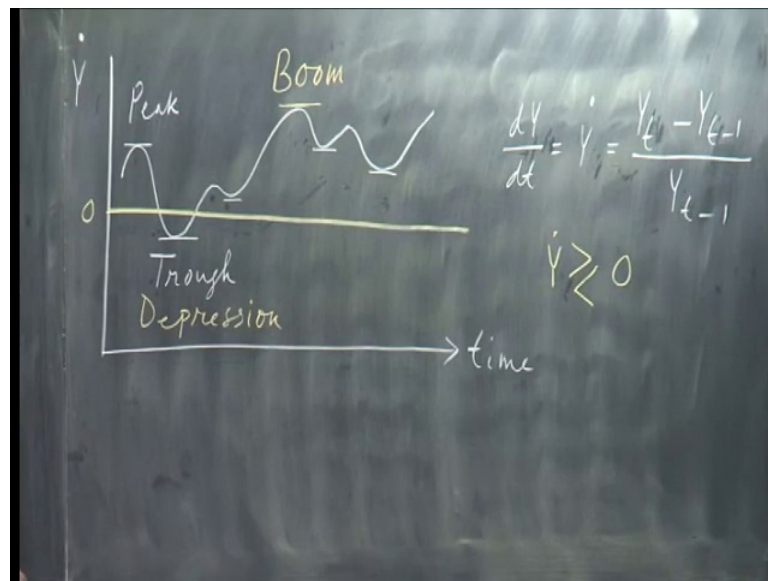 Ẏ
Peak
Boom
0
Trough
Depression
time
dY/dt = Ẏ = (Y_t - Y_{t-1})/Y_{t-1}
Ẏ ≷ 0